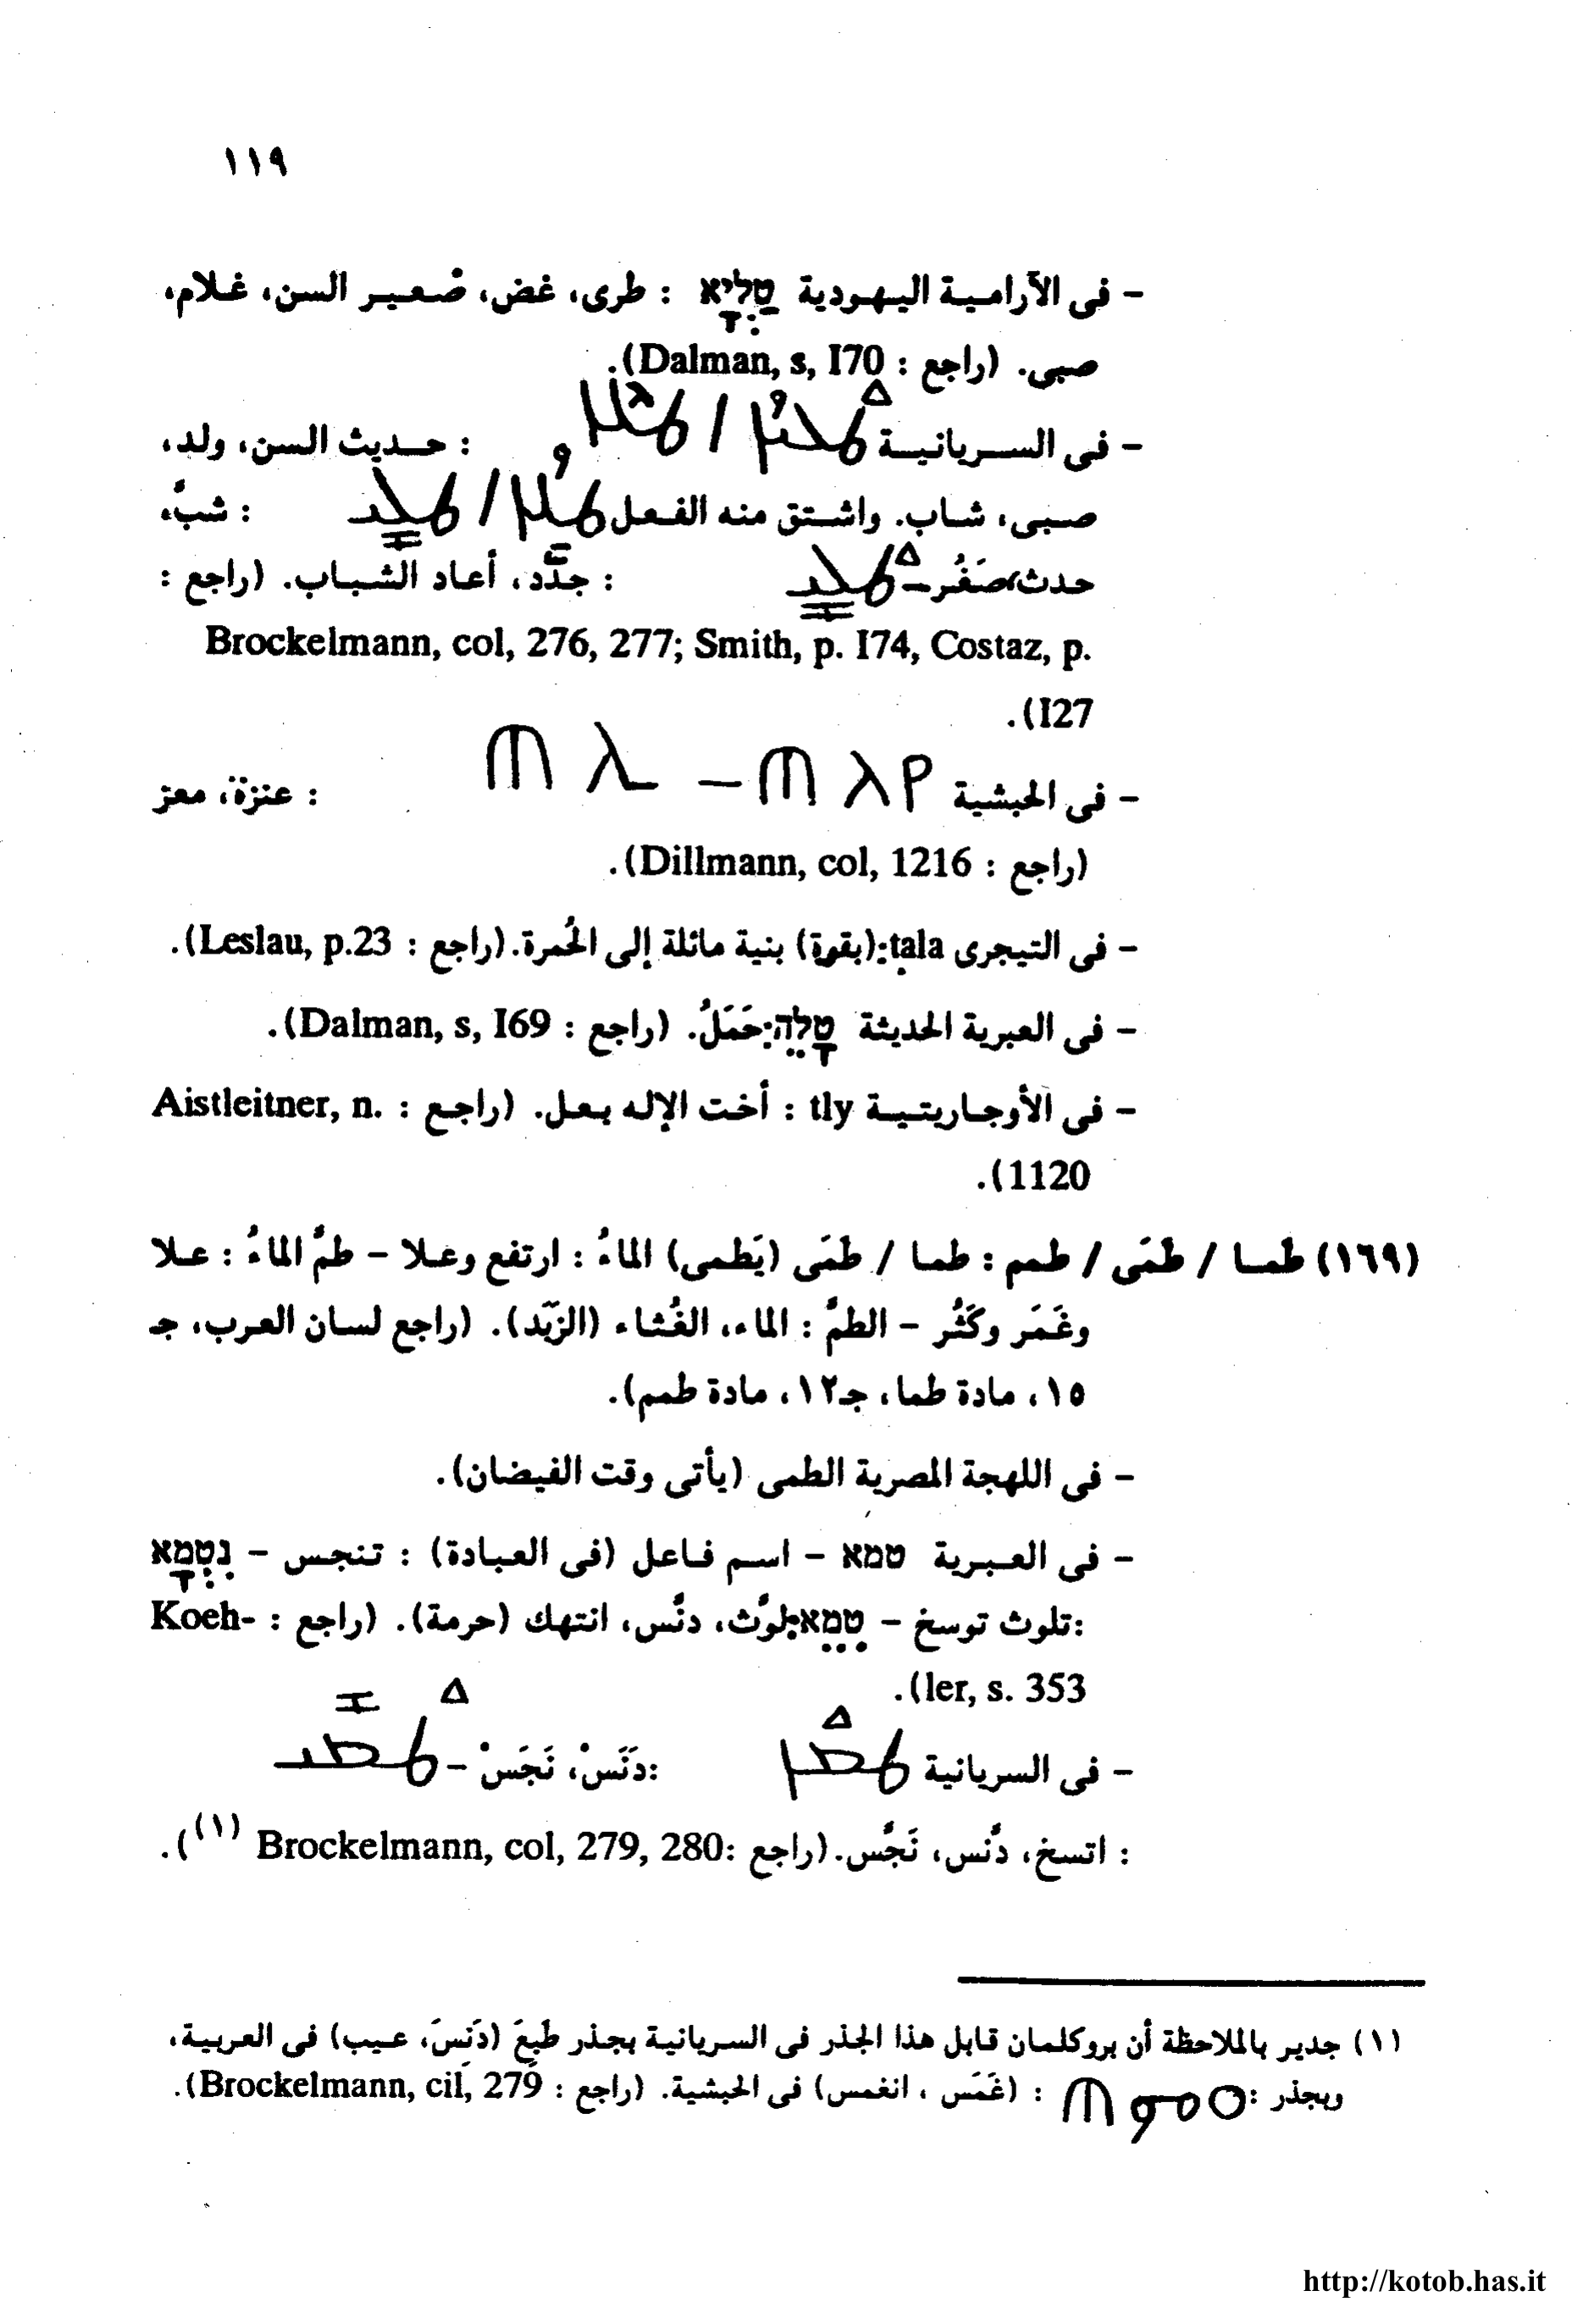 ١١٩
- فى الآرامية اليهودية טַלְיָא : طرى، غض، صغير السن، غلام،
صبى. (راجع : Dalman, s, I70).
- فى السريانية / : حديث السن، ولد،
صبى، شاب. واشتق منه الفعل / : شبَّ،
حدث، صَغُر – : جدَّد، أعاد الشباب. (راجع :
Brockelmann, col, 276, 277; Smith, p. I74, Costaz, p.
I27).
- فى الحبشية – : عنزة، معز
(راجع : Dillmann, col, 1216).
- فى التيجرى ṭala:(بقرة) بنية مائلة إلى الحُمرة.(راجع : Leslau, p.23).
- فى العبرية الحديثة טָלֵה:حَمَلُ. (راجع : Dalman, s, I69).
- فى الأوجاريتية tly : أخت الإله بعل. (راجع : Aistleitner, n.
1120).
(١٦٩) طما / طمَى / طمم : طما / طمَى (يَطمى) الماءُ : ارتفع وعلا – طمَّ الماءُ : علا
وغَمَر وكَثُر – الطمُّ : الماء، الغُثاء (الزبَد). (راجع لسان العرب، جـ
١٥، مادة طما، جـ١٢، مادة طمم).
- فى اللهجة المصرية الطمى (يأتى وقت الفيضان).
- فى العبرية טמא – اسم فاعل (فى العبادة) : تنجس – נִטְמָא
:تلوث توسخ – טִמֵּא:لوَّث، دنَّس، انتهك (حرمة). (راجع : Koeh-
ler, s. 353).
- فى السريانية ܛܡܐ :دَنَسْ، نَجَسْ –
: اتسخ، دنَّس، نَجَّس.(راجع :Brockelmann, col, 279, 280 (١)).
(١) جدير بالملاحظة أن بروكلمان قابل هذا الجذر فى السريانية بجذر طَبِعَ (دَنِسَ، عيب) فى العربية،
وبجذر : : (غَمَس ، انغمس) فى الحبشية. (راجع : Brockelmann, cil, 279).
http://kotob.has.it